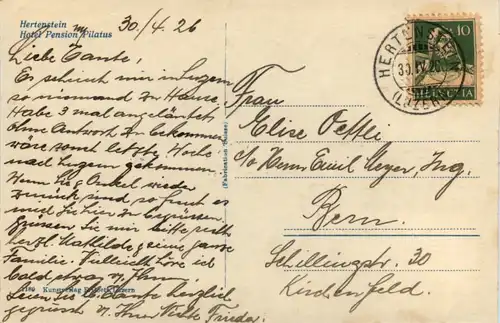 Hertenstein
Hotel Pension Pilatus
30./4. 26
Liebe Tante,
Es scheint mir in Luzern
so niemand zu Hause.
Habe 3 mal angeläutet
ohne Antwort zu bekommen
wäre sonst letzte Woche
nach Luzern gekommen.
Wenn Sie & Onkel wieder
zurück sind so freut es
mich Sie hier zu begrüssen.
Grüssen Sie mir bitte recht
herzl. Mathilde & seine ganze
Familie. Vielleicht höre ich
bald etwas v. Ihnen
Seien Sie l. Tante herzlich
gegrüsst v. Ihrer Nichte Frieda.
1180 Kunstverlag Luzern
(Fabrication Suisse)
HERTENSTEIN
(LUZERN)
10
HELVETIA
Frau
Elise Oettli
c/o Herrn Emil Meyer, Ing.
Bern.
Schillingstr. 30
Kirchenfeld.